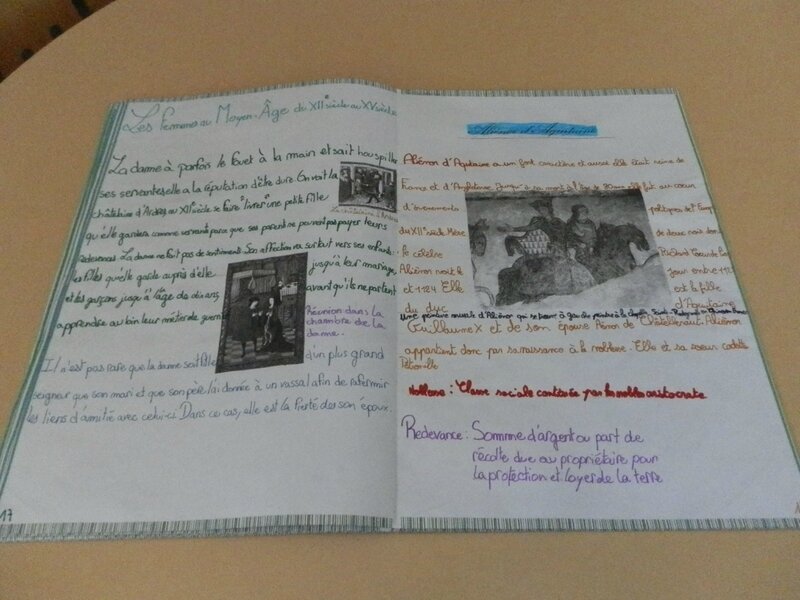 Les femmes au Moyen-Âge du XIIe siècle au XVe siècle
La dame a parfois le fouet à la main et sait houspiller
ses servantes elle a la réputation d'être dure On voit la
châtelaine d'Ardres au XIe siècle se faire "livrer" une petite fille
La châtelaine d'Ardres
qu'elle gardera comme servante parce que ses parents ne peuvent pas payer leurs
redevances La dame ne fait pas de sentiments Son affection va surtout vers ses enfants:
les filles qu'elle garde auprès d'elle jusqu'à leur mariage,
et les garçons jusqu'à l'âge de dix ans, avant qu'ils ne partent
apprendre au loin leur métier de guerrier
Réunion dans la
chambre de la
dame.
Il n'est pas rare que la dame soit fille d'un plus grand
seigneur que son mari et que son père l'ai donnée à un vassal afin de rafermir
les liens d'amitié avec celui-ci. Dans ce cas, elle est la fierté de son époux.
17
Aliénor d'Aquitaine
Aliénor d'Aquitaine a un fort caractère et aussi elle était reine de
France et d'Angleterre Jusqu'à sa mort à l'âge de 80 ans elle fut au coeur
d'évenements politiques de l'
du XIIe siècle Mère de deux rois dont
le célèbre Richard Coeur de Lion
Aliénor naît le jour entre 1122
et 1124 Elle est la fille
du duc d'Aquitaine
une peinture murale d'Aliénor qui se trouve à
Guillaume X et de son épouse Aénor de Châtellerault. Aliénor
appartient donc par sa naissance à la noblesse. Elle et sa soeur cadette
Pétronille
Noblesse : Classe sociale constituée par les nobles aristocrate
Redevance : Somme d'argent ou part de
récolte due au propriétaire pour
la protection et loyer de la terre